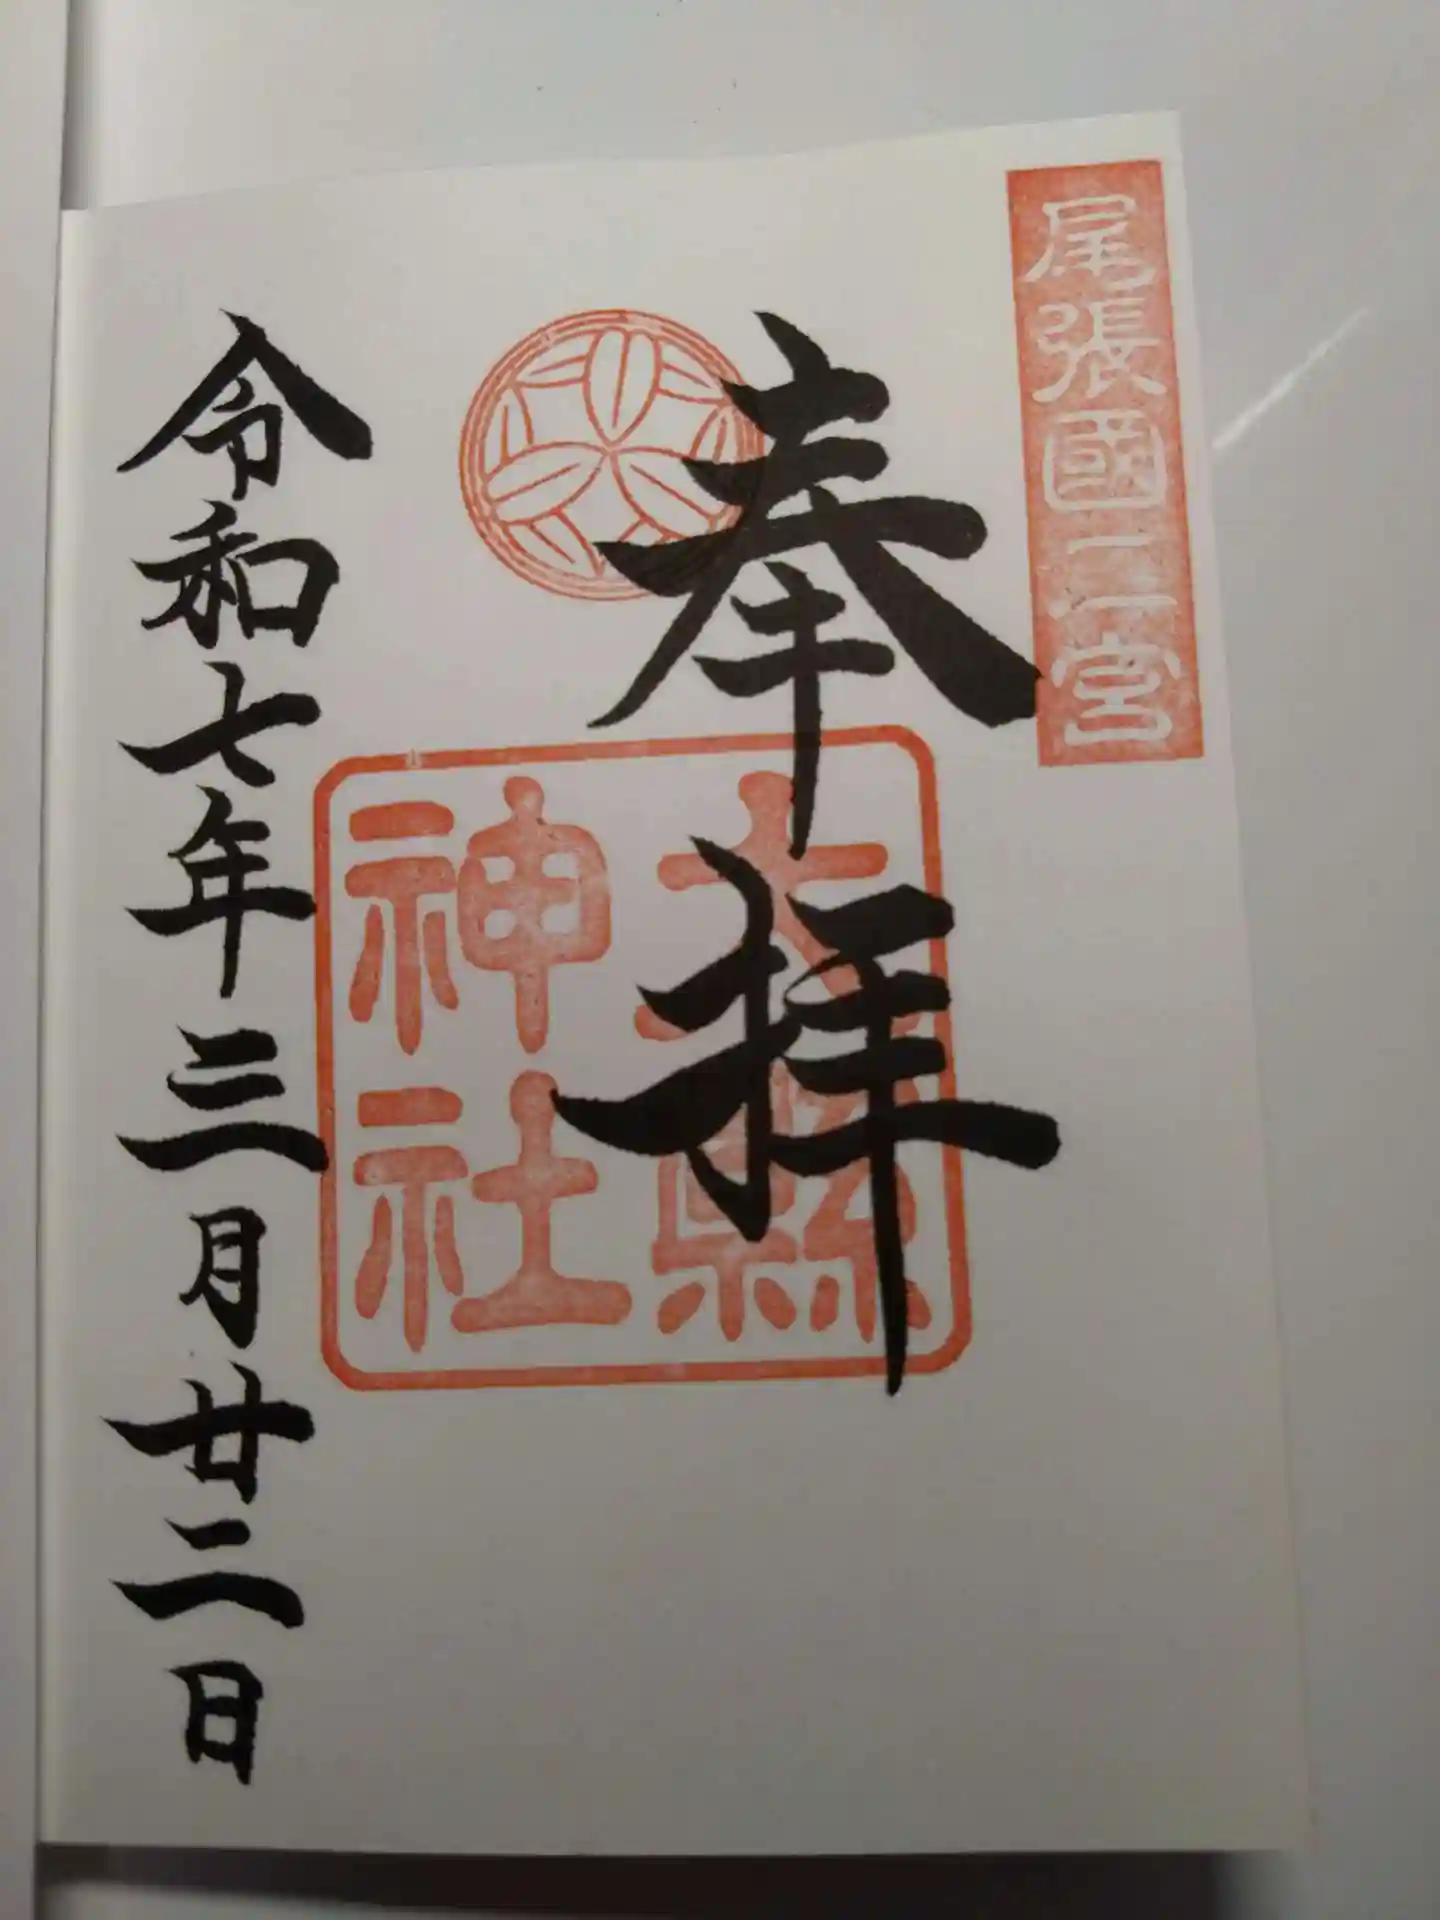 尾張國二宮
奉拝
大縣神社
令和七年三月廿二日